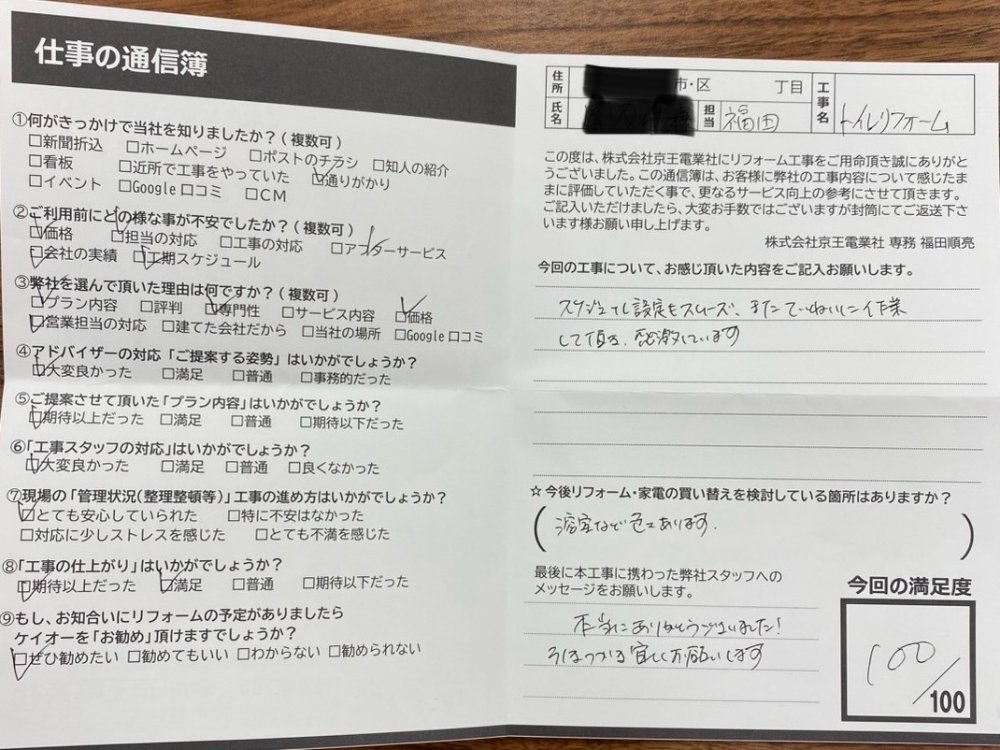 仕事の通信簿
①何がきっかけで当社を知りましたか？（複数可）
□新聞折込 □ホームページ □ポストのチラシ □知人の紹介
□看板 □近所で工事をやっていた ☑通りがかり
□イベント □Google口コミ □ＣＭ
②ご利用前にどの様な事が不安でしたか？（複数可）
☑価格 ☑担当の対応 □工事の対応 ☑アフターサービス
☑会社の実績 ☑工期スケジュール
③弊社を選んで頂いた理由は何ですか？（複数可）
☑プラン内容 □評判 ☑専門性 □サービス内容 ☑価格
☑営業担当の対応 □建てた会社だから □当社の場所 □Google口コミ
④アドバイザーの対応「ご提案する姿勢」はいかがでしょうか？
☑大変良かった □満足 □普通 □事務的だった
⑤ご提案させて頂いた「プラン内容」はいかがでしょうか？
☑期待以上だった □満足 □普通 □期待以下だった
⑥「工事スタッフの対応」はいかがでしょうか？
☑大変良かった □満足 □普通 □良くなかった
⑦現場の「管理状況（整理整頓等）」工事の進め方はいかがでしょうか？
☑とても安心していられた □特に不安はなかった
□対応に少しストレスを感じた □とても不満を感じた
⑧「工事の仕上がり」はいかがでしょうか？
☑期待以上だった ☑満足 □普通 □期待以下だった
⑨もし、お知合いにリフォームの予定がありましたら
ケイオーを「お勧め」頂けますでしょうか？
☑ぜひ勧めたい □勧めてもいい □わからない □勧められない
住所 市・区 丁目
氏名 担当 福田
工事名 トイレリフォーム
この度は、株式会社京王電業社にリフォーム工事をご用命頂き誠にありがと
うございました。この通信簿は、お客様に弊社の工事内容について感じたま
まに評価していただく事で、更なるサービス向上の参考にさせて頂きます。
ご記入いただけましたら、大変お手数ではございますが封筒にてご返送下さ
います様お願い申し上げます。
株式会社京王電業社 専務 福田順亮
今回の工事について、お感じ頂いた内容をご記入お願いします。
スケジュール設定もスムーズ、またていねいに作業
して頂き、感激しています
☆今後リフォーム・家電の買い替えを検討している箇所はありますか？
（浴室など色々あります．）
最後に本工事に携わった弊社スタッフへの
メッセージをお願いします。
本当にありがとうございました！
宜しくお願いします
今回の満足度
100
／100